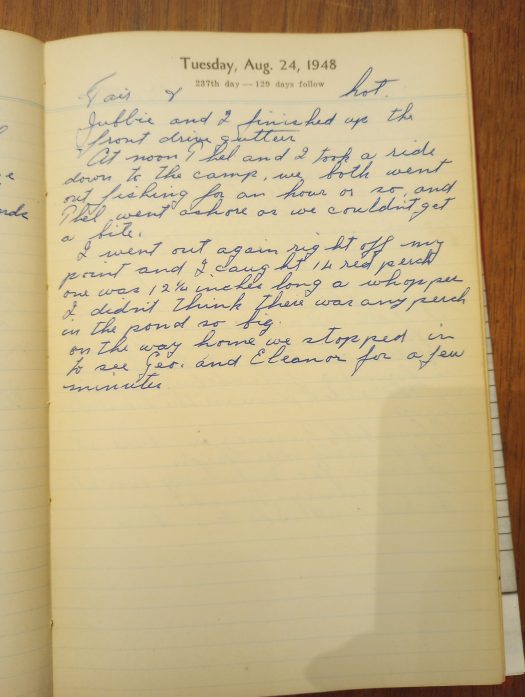 Tuesday, Aug. 24, 1948
237th day — 129 days follow
Fair & hot.
Jubbie and I finished up the
front drive gutter
At noon Phel and I took a ride
down to the camp, we both went
out fishing for an hour or so, and
Phel went ashore as we couldn't get
a bite.
I went out again right off my
point and I caught 14 red perch
one was 12¼ inches long a whopper
I didn't think there was any perch
in the pond so big.
on the way home we stopped in
to see Geo. and Eleanor for a few
minutes